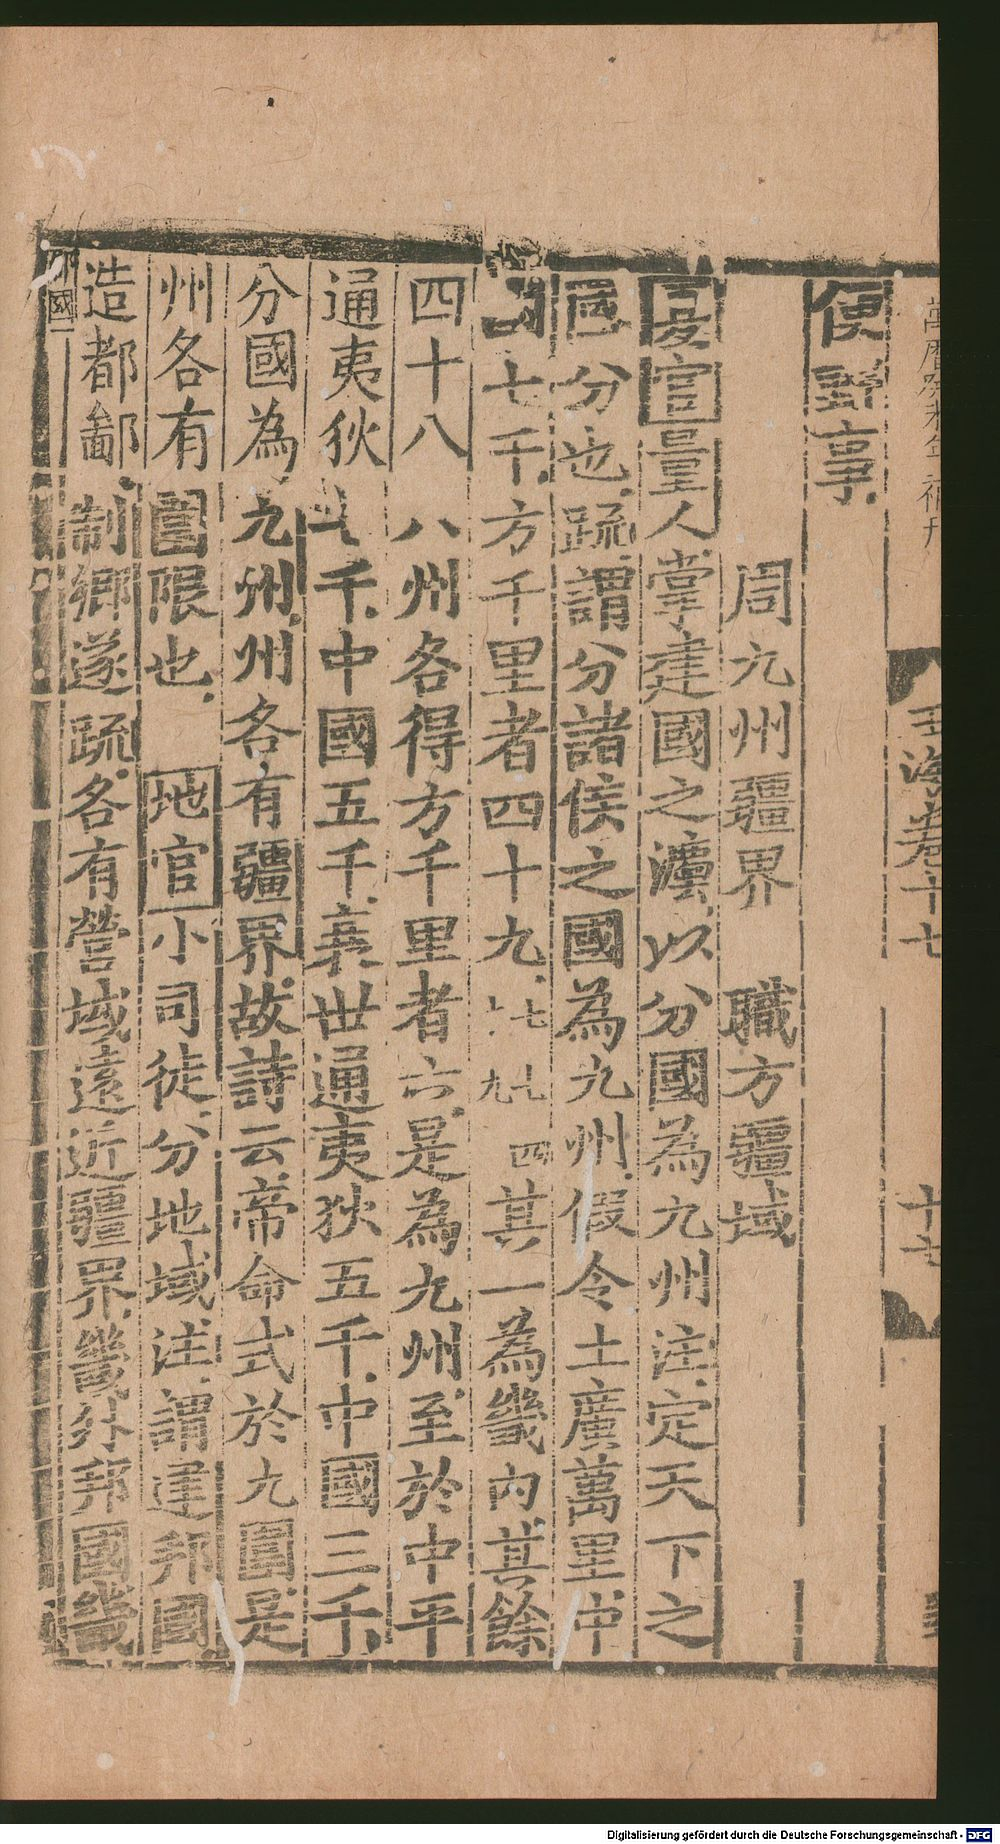 玉海卷十七
十七
便對事
周九州疆界　職方疆域
夏官量人掌建國之灋以分國為九州注定天下之
國分也疏謂分諸侯之國為九州假令土廣萬里中
國七千方千里者四十九七七四六九其一為畿內其餘
四十八　八州各得方千里者六是為九州至於中平
通夷狄七千中國五千衰世通夷狄五千中國三千
分國為九州州各有疆界故詩云帝命式於九圍是
州各有圍限也　地官小司徒分地域注謂建邦國
造都鄙制鄉遂疏各有營域遠近疆界畿外邦國畿
邦國
Digitalisierung gefördert durch die Deutsche Forschungsgemeinschaft - DFG